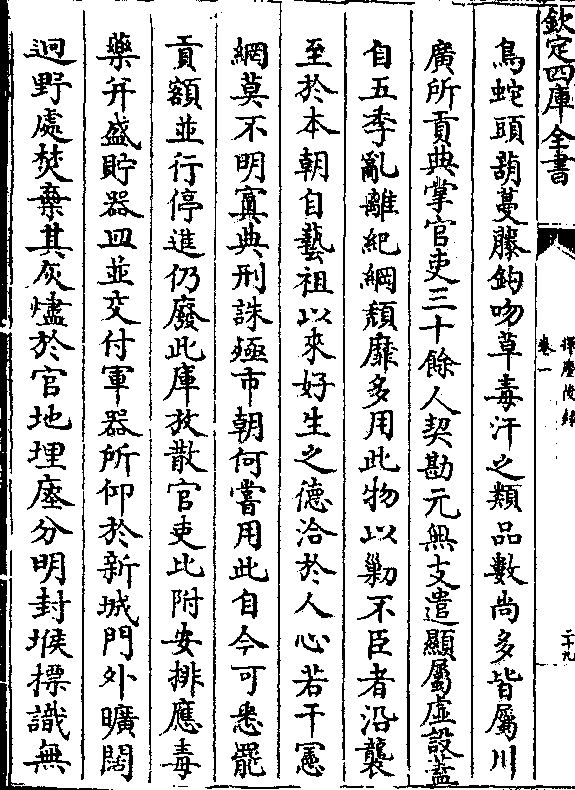 欽定四庫全書
揮麈後錄
卷一
二十九
鳥蛇頭葫蔓藤鈎吻草毒汗之類品數尚多皆屬川
廣所貢典掌官吏三十餘人契勘元無支遣顯屬虛設蓋
自五季亂離紀綱頹靡多用此物以勦不臣者沿襲
至於本朝自藝祖以來好生之德洽於人心若干憲
網莫不明寘典刑誅殛市朝何嘗用此自今可悉罷
貢額並行停進仍廢此庫放散官吏比附安排應毒
藥并盛貯器皿並交付軍器所仰於新城門外曠闊
迥野處焚棄其灰燼於官地埋瘞分明封堠摽識無